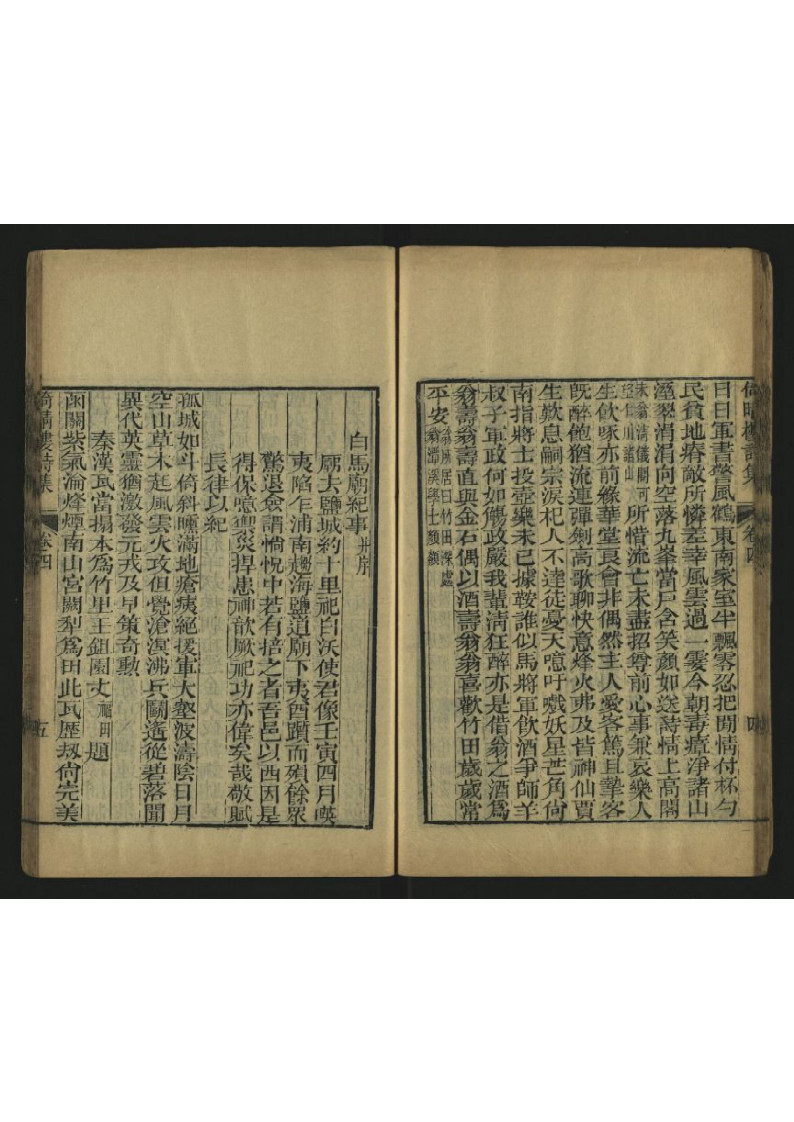 倚晴樓詩集 卷四 四
日日軍書警風鶴東南家室半飄零忍把閒情付杯勺
民貧地瘠敵所憐差幸風雲過一霎今朝毒瘴淨諸山
溼翠涓涓向空落九峯當戶含笑顏如送詩情上高閣
生飲啄亦前緣華堂良會非偶然主人愛客篤且摯客
旣醉飽猶流連彈劍高歌聊快意烽火弗及皆神仙賈
生歎息嗣宗淚杞人不達徒憂天噫吁戲妖星芒角尙
南指將士投壺樂未已據鞍誰似馬將軍飲酒爭師羊
叔子軍政何如觴政嚴我輩淸狂醉亦是借翁之酒爲
翁壽翁壽直與金石偶以酒壽翁翁喜歡竹田歲歲常
平安
白馬廟紀事 并序
廟去鹽城約十里祀白沃使君像壬寅四月㗸
夷陷乍浦南趨海鹽道廟下夷酋躓而殞餘眾
驚退僉謂惝怳中若有掊之者吾邑以西因是
得保噫禦災捍患神歆厥祀功亦偉矣哉敬賦
長律以紀
孤城如斗倚斜曛滿地瘡痍絕援軍大壑波濤陰日月
空山草木起風雲火攻但覺滄溟沸兵鬬遙從碧落聞
異代英靈猶激發元戎及早策奇勳
秦漢瓦當搨本爲竹里王鉏園丈 福田 題
函關紫氣淪烽煙南山宮闕犁爲田此瓦歷刼尙完美
倚晴樓詩集 卷四 五